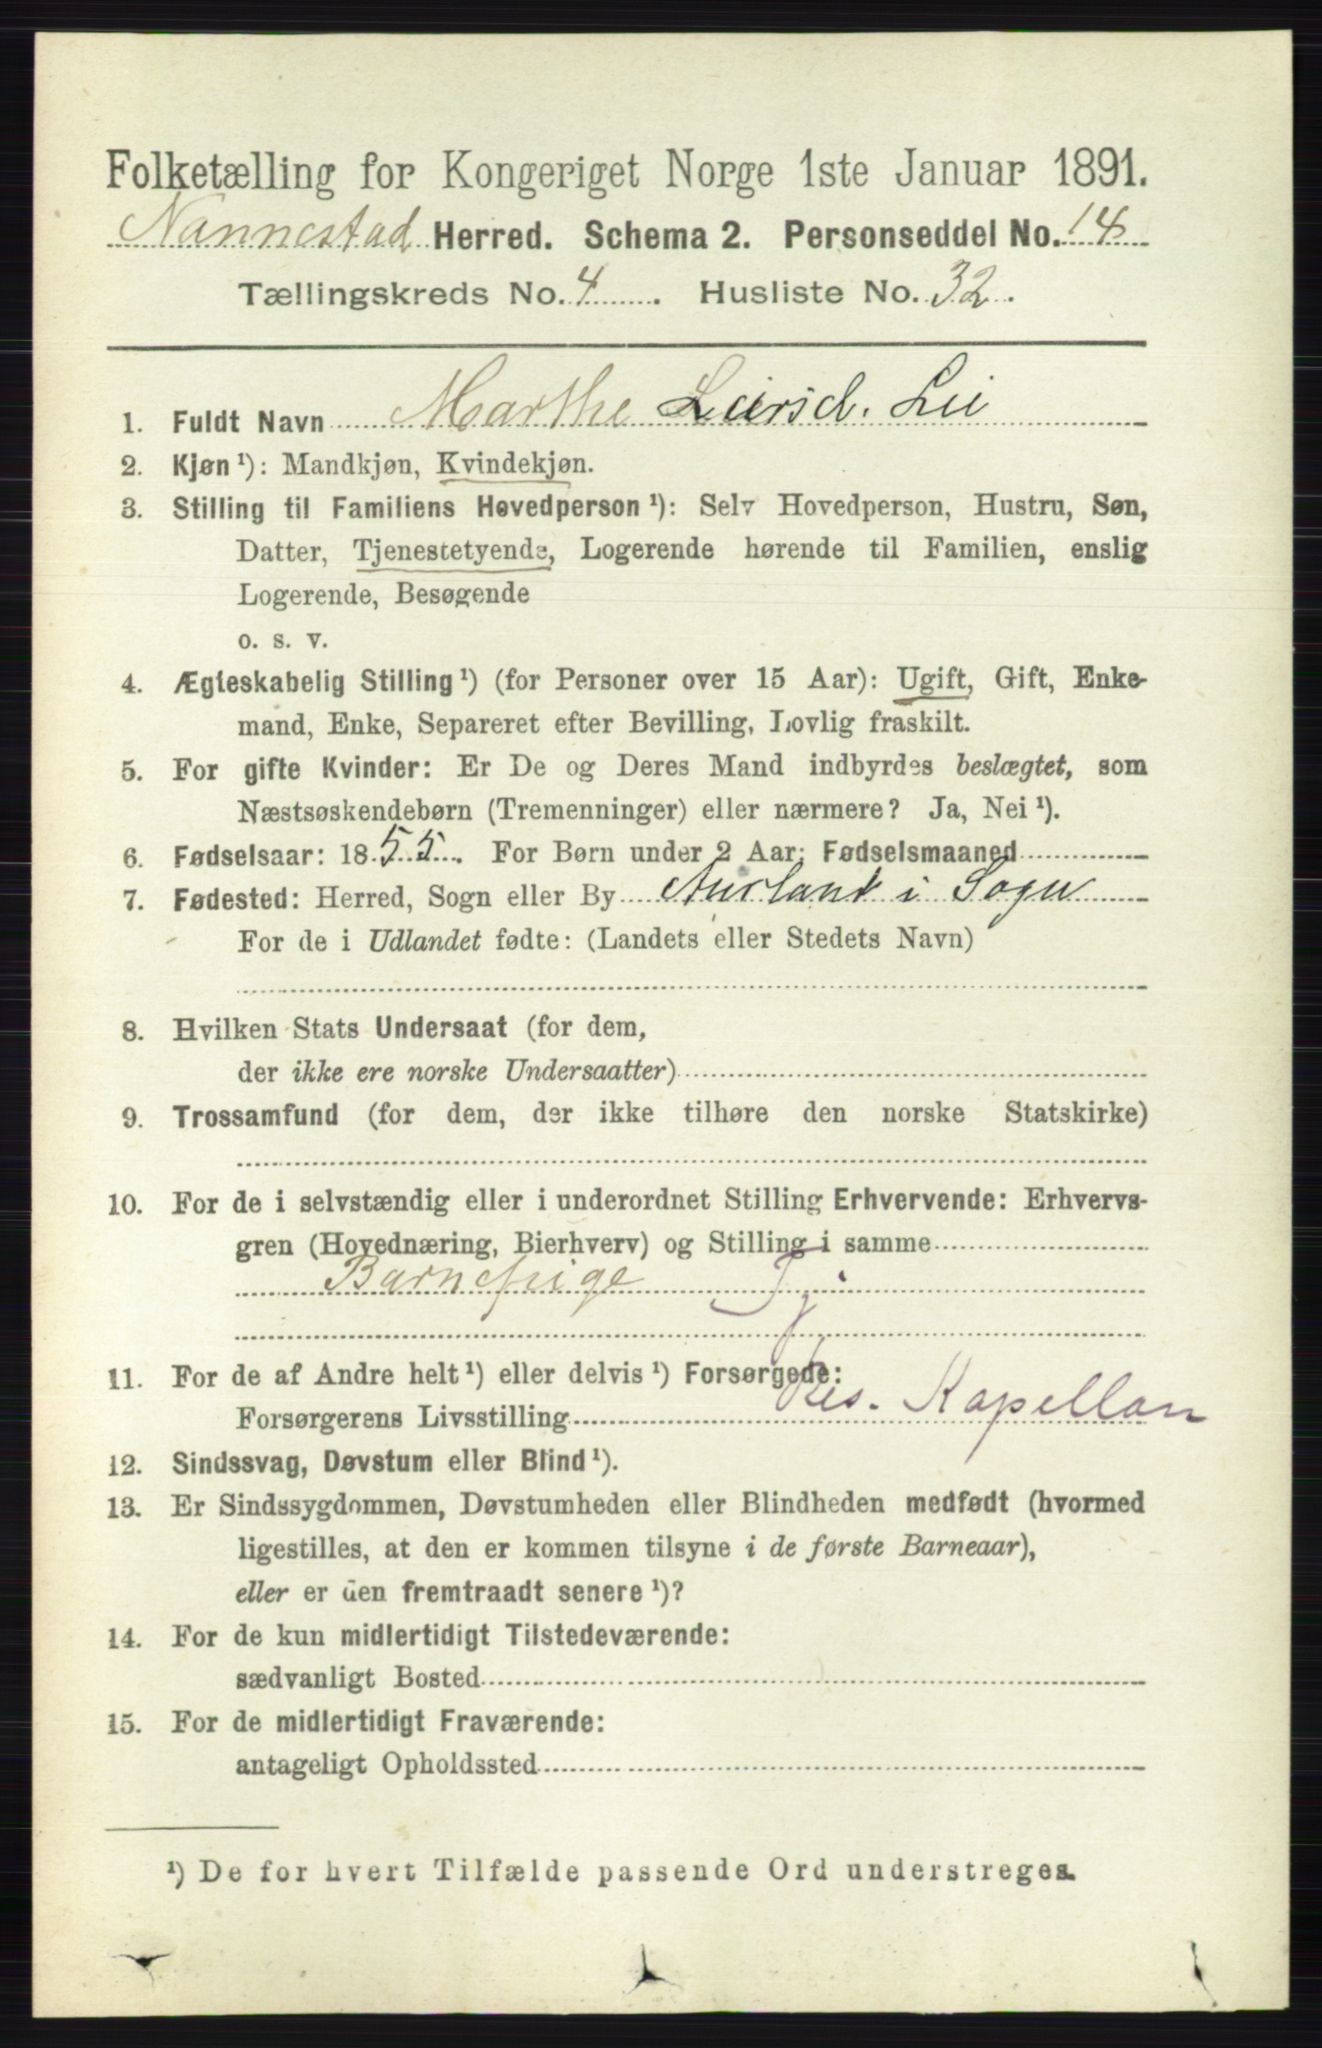 Folketælling for Kongeriget Norge 1ste Januar 1891.
Nannestad Herred. Schema 2. Personseddel No. 14
Tællingskreds No. 4. Husliste No. 32.
1. Fuldt Navn Marthe Larsd. Lie
2. Kjøn ¹): Mandkjøn, Kvindekjøn.
3. Stilling til Familiens Hovedperson ¹): Selv Hovedperson, Hustru, Søn,
Datter, Tjenestetyende, Logerende hørende til Familien, enslig
Logerende, Besøgende
o. s. v.
4. Ægteskabelig Stilling ¹) (for Personer over 15 Aar): Ugift, Gift, Enke-
mand, Enke, Separeret efter Bevilling, Lovlig fraskilt.
5. For gifte Kvinder: Er De og Deres Mand indbyrdes beslægtet, som
Næstsøskendebørn (Tremenninger) eller nærmere? Ja, Nei ¹).
6. Fødselsaar: 1855. For Børn under 2 Aar: Fødselsmaaned
7. Fødested: Herred, Sogn eller By Aurland i Sogn
For de i Udlandet fødte: (Landets eller Stedets Navn)
8. Hvilken Stats Undersaat (for dem,
der ikke ere norske Undersaatter)
9. Trossamfund (for dem, der ikke tilhøre den norske Statskirke)
10. For de i selvstændig eller i underordnet Stilling Erhvervende: Erhvervs-
gren (Hovednæring, Bierhverv) og Stilling i samme
Barnepige Tj.
11. For de af Andre helt ¹) eller delvis ¹) Forsørgede:
Forsørgerens Livsstilling Res. Kapellan
12. Sindssvag, Døvstum eller Blind ¹).
13. Er Sindssygdommen, Døvstumheden eller Blindheden medfødt (hvormed
ligestilles, at den er kommen tilsyne i de første Barneaar),
eller er den fremtraadt senere ¹)?
14. For de kun midlertidigt Tilstedeværende:
sædvanligt Bosted
15. For de midlertidigt Fraværende:
antageligt Opholdssted
¹) De for hvert Tilfælde passende Ord understreges.